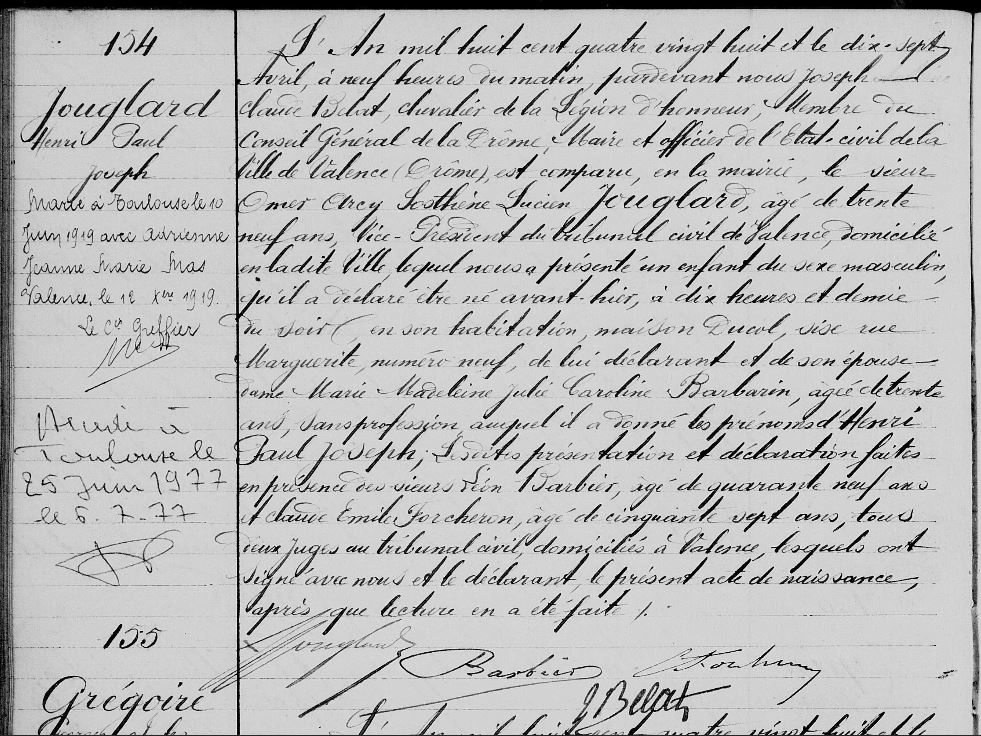 154
Jouglard
Henri Paul
Joseph
Marié à Toulouse le 10
Juin 1919 avec Adrienne
Jeanne Marie Mas
Valence, le 12 Xbre 1919.
Le Cis Greffier
Décédé à
Toulouse le
25 Juin 1977
le 6.7.77
L'An mil huit cent quatre vingt huit et le dix-sept
Avril, à neuf heures du matin, pardevant nous Joseph
Claude Belat, chevalier de la Légion d'honneur, Membre du
Conseil Général de la Drôme, Maire et officier de l'Etat-civil de la
Ville de Valence (Drôme), est comparu, en la mairie, le sieur
Omer Arcy Sosthène Lucien Jouglard, âgé de trente
neuf ans, Vice-Président du tribunal civil de Valence, domicilié
en ladite Ville, lequel nous a présenté un enfant du sexe masculin,
qu'il a déclaré être né avant-hier, à dix heures et demie
du soir, en son habitation, maison Ducol, sise rue
Marguerite, numéro neuf, de lui déclarant et de son épouse
dame Marie Madeleine Julie Caroline Barbarin, âgée de trente
ans, sans profession, auquel il a donné les prénoms d'Henri
Paul Joseph; Lesdites présentation et déclaration faites
en présence des sieurs Léon Barbier, âgé de quarante neuf ans
et Claude Emile Forcheron, âgé de cinquante sept ans, tous
deux Juges au tribunal civil, domiciliés à Valence, lesquels ont
signé avec nous et le déclarant, le présent acte de naissance,
après que lecture en a été faite /.
Jouglard
Barbier
J Belat
155
Grégoire
L'An mil huit cent quatre vingt huit et le